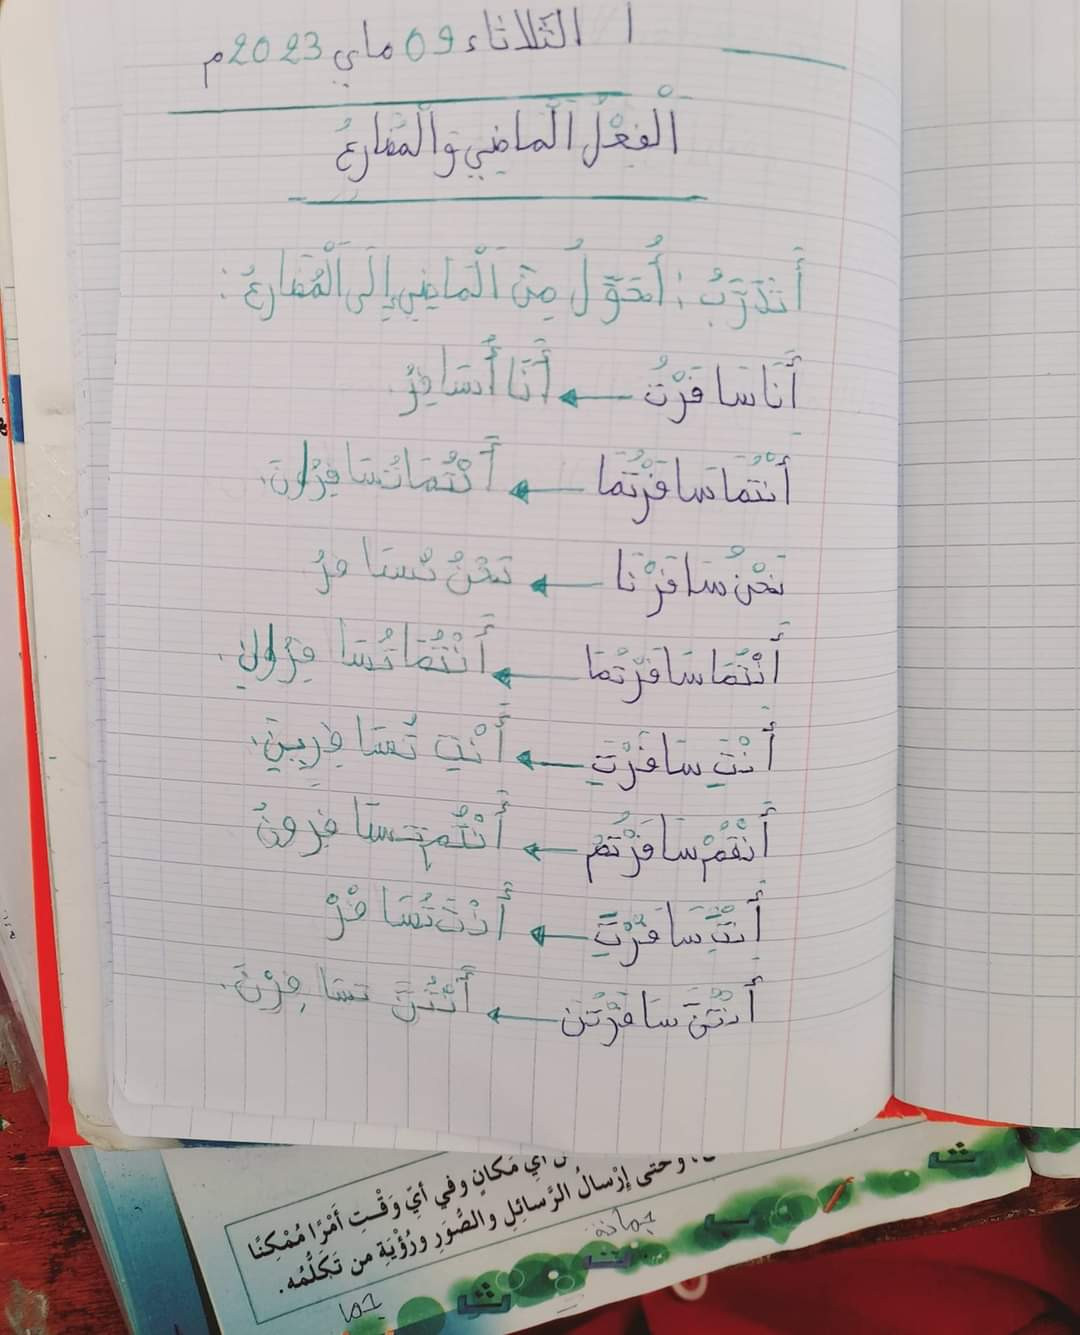 الثلاثاء 09 ماي 2023م
اَلْفِعْلُ اَلْمَاضِي وَالْمُضَارِعُ
أَتَدَرَّبُ : أُحَوِّلُ مِنَ اَلْمَاضِي إِلَى اَلْمُضَارِعُ :
أَنَا سَافَرْتُ ← أَنَا أُسَافِرُ
أَنْتُمَا سَافَرْتُمَا ← أَنْتُمَا تُسَافِرَانِ.
نَحْنُ سَافَرْنَا ← نَحْنُ نُسَافِرُ
أَنْتُمَا سَافَرْتُمَا ← أَنْتُمَا تُسَافِرَانِ.
أَنْتِ سَافَرْتِ ← أَنْتِ تُسَافِرِينَ.
أَنْتُمْ سَافَرْتُمْ ← أَنْتُم تسَافِرُونُ
أَنْتَ سَافَرْتَ ← أَنْتَ تُسَافِرْ
أَنْتُنَّ سَافَرْتُنَ ← أَنْتُنَّ تسَافِرْنَ.
أَيِّ مَكَانٍ وفي أيِّ وَقْتٍ أَمْرًا مُمْكِنًا
وحتى إرْسالُ الرَّسائِلِ والصُّوَرِ ورُؤْيَةِ من تَكَلُّمُه.